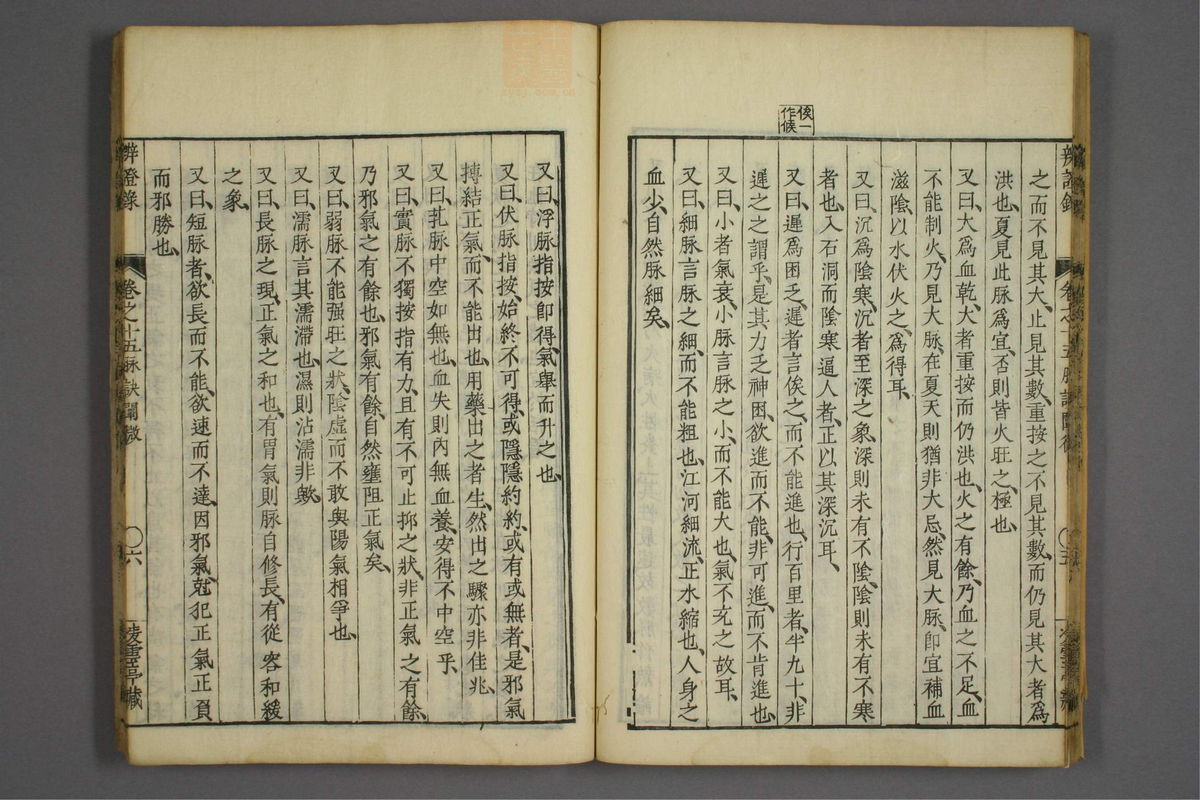 俟一
作候
之而不見其大、止見其數、重按之不見其數、而仍見其大者爲
洪也、夏見此脉爲宜、否則皆火旺之極也、
又曰、大爲血乾、大者重按而仍洪也、火之有餘、乃血之不足、血
不能制火、乃見大脉、在夏天則猶非大忌、然見大脉、卽宜補血
滋陰、以水伏火之、爲得耳、
又曰、沉爲陰寒、沉者至深之象、深則未有不陰、陰則未有不寒
者也、入石洞而陰寒逼人者、正以其深沉耳、
又曰、遲爲困乏、遲者言俟之、而不能進也、行百里者、半九十、非
遲之之謂乎、是其力乏神困、欲進而不能、非可進、而不肯進也、
又曰、小者氣衰、小脉言脉之小、而不能大也、氣不充之故耳、
又曰、細脉言脉之細、而不能粗也、江河細流、正水縮也、人身之
血少、自然脉細矣、
又曰、浮脉指按卽得、氣舉而升之也、
又曰、伏脉指按、始終不可得、或隱隱約約、或有或無者、是邪氣
搏結正氣、而不能出也、用藥出之者生、然出之驟亦非佳兆、
又曰、芤脉中空如無也、血失則內無血養、安得不中空乎、
又曰、實脉不獨按指有力、且有不可止抑之狀、非正氣之有餘、
乃邪氣之有餘也、邪氣有餘、自然壅阻正氣矣、
又曰、弱脉不能强旺之狀、陰虛而不敢與陽氣相爭也、
又曰、濡脉言其濡滯也、濕則沾濡非歟、
又曰、長脉之現、正氣之和也、有胃氣則脉自修長、有從容和緩
之象、
又曰、短脉者、欲長而不能、欲速而不達、因邪氣尅犯正氣、正負
而邪勝也、
辨證錄
卷之十五脉訣闡微
六